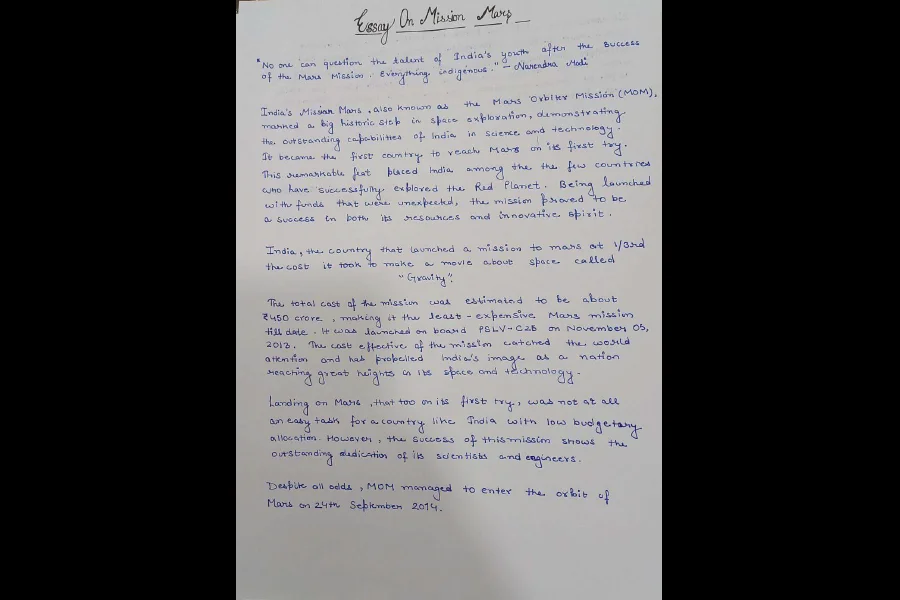 Essay On Mission Mars
"No one can question the talent of India's youth after the success
of the Mars Mission. Everything indigenous." - Narendra Modi
India's Mission Mars, also known as the Mars Orbiter Mission (MOM),
marked a big historic step in space exploration, demonstrating
the outstanding capabilities of India in science and technology.
It became the first country to reach Mars on its first try.
This remarkable feat placed India among the the few countries
who have successfully explored the Red Planet. Being launched
with funds that were unexpected, the mission proved to be
a success in both its resources and innovative spirit.
India, the country that launched a mission to mars at 1/3rd
the cost it took to make a movie about space called
"Gravity".
The total cost of the mission was estimated to be about
₹450 crore, making it the least-expensive Mars mission
till date. It was launched on board PSLV-C25 on November 05,
2013. The cost effective of the mission catched the world
attention and has propelled India's image as a nation
reaching great heights in its space and technology.
Landing on Mars, that too on its first try, was not at all
an easy task for a country like India with low budgetary
allocation. However, the success of this mission shows the
outstanding dedication of its scientists and engineers.
Despite all odds, MOM managed to enter the orbit of
Mars on 24th September 2014.